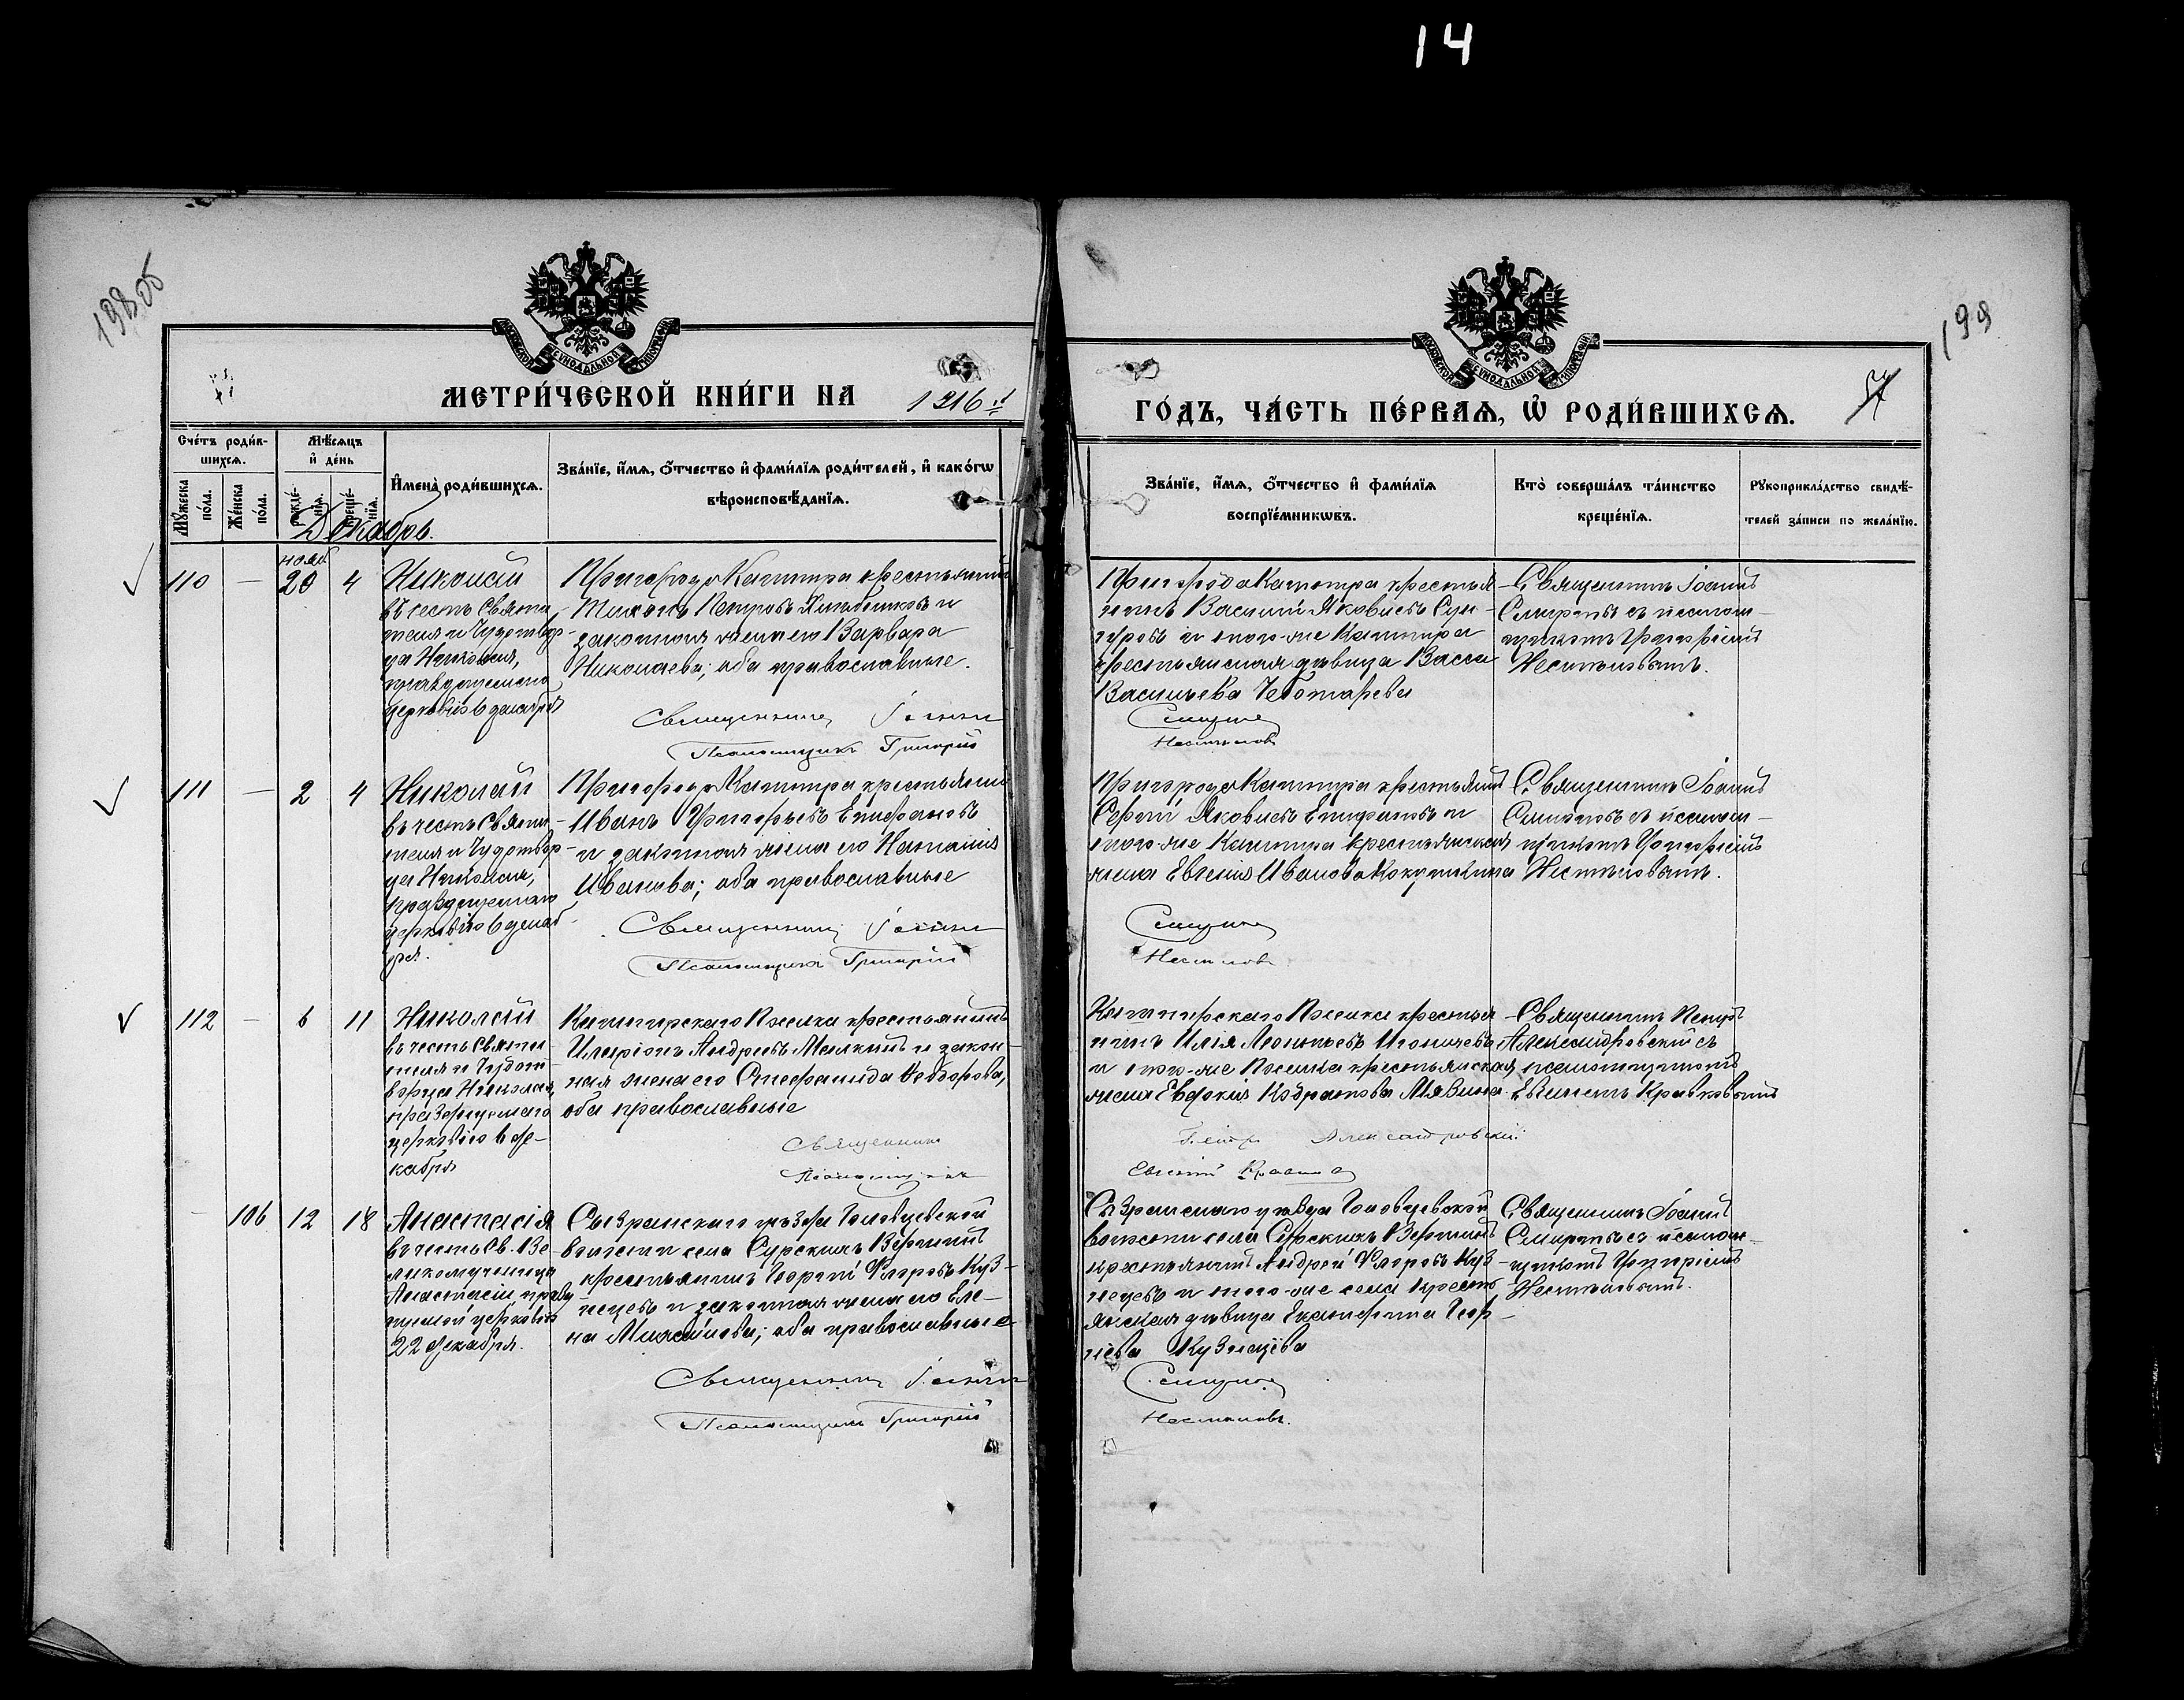 14
198 об
199
57
МЕТРИ́ЧЕСКОЙ КНИ́ГИ НА 1916 й
ГО́ДЪ, ЧА́СТЬ ПЕ́РВАѦ, Ѡ҆ РОДИ́ВШИХСѦ.
Сче́тъ роди́в-
шихсѧ.
Мѣ́сѧцъ
и҆ де́нь
Мꙋ́жеска по́ла.
Же́нска по́ла.
рожде́-
нїѧ.
креще́-
нїѧ.
И҆мена̀ роди́вшихсѧ.
Зва́нїе, и҆́мѧ, ѻ҆́тчество и҆ фами́лїѧ роди́телей, и҆ како́гѡ
вѣроисповѣ́данїѧ.
Зва́нїе, и҆́мѧ, ѻ҆́тчество и҆ фами́лїѧ
воспрїе́мникѡвъ.
Кто̀ соверша́лъ та́инство
креще́нїѧ.
Рꙋкоприкла́дство свидѣ́-
телей за́писи по жела́нїю.
Декабрь.
нояб
110 — 20 4 Николай
въ честь Святи
теля и Чудотвор-
ца Николая,
празднуемаго
церковію 6 декабря
Пригорода Кашпира крестьянинъ
Тихонъ Петровъ и
законная жена его Варвара
Николаева; оба православные.
Священникъ Іоаннъ
Псаломщикъ Григорій
Пригорода Кашпира крестья-
нинъ Василій Яковлевъ Сун-
гуровъ и того-же Кашпира
крестьянская дѣвица Васса
Васильева Чеботарева
Смирнов
Нестеловъ
Священникъ Іоаннъ
Смирновъ съ псалом-
щикомъ Григоріемъ
111 — 2 4 Николай
въ честь Святи-
теля и Чудотвор-
ца Николая,
празднуемаго
церковію 6 декаб-
ря.
Пригорода Кашпира крестьянинъ
Иванъ Григорьевъ Епифановъ
и законная жена его Наталія
Иванова; оба православные
Священникъ Іоаннъ
Псаломщикъ Григорій
Пригорода Кашпира крестьянинъ
Сергѣй Яковлевъ Епифановъ и
того-же Кашпира крестьянская
жена Евгенія Иванова
Смирнов
Священникъ Іоаннъ
Смирновъ съ псалом-
щикомъ Григоріемъ
112 — 6 11 Николай
въ честь Святи
теля и Чудот-
ворца Николая,
празднуемаго
церковію 6 де-
кабря
Кашпирскаго Поселка крестьянинъ
Иларіонъ Андреевъ и закон-
ная жена его Стефанида Ѳеодорова,
оба православные
Священникъ
Псаломщикъ
Кашпирскаго Поселка крестья-
нинъ Илія Леонтьевъ
и того-же Поселка крестьянская
жена Евдокія
Петръ Александровскій
Евгеній
Священникъ Петръ
Александровскій съ
псаломщикомъ
Евгеніемъ
106 12 18 Анастасія
въ честь Св. Ве-
ликомученицы
Анастасіи праздн
уемой церковію
22 декабря.
Сызранскаго уѣзда
волости села Сурскихъ Вершинъ
крестьянинъ Георгій Флоровъ Куз-
нецовъ и законная жена его Еле-
на; оба православные
Священникъ Іоаннъ
Псаломщикъ Григорій
Сызранскаго уѣзда
волости села Сурскихъ Вершинъ
крестьянинъ Андрей Флоровъ Куз-
нецовъ и того-же села кресть-
янская дѣвица Екатерина Геор-
гіева Кузнецова
Смирнов
Священникъ Іоаннъ
Смирновъ съ псалом-
щикомъ Григоріемъ